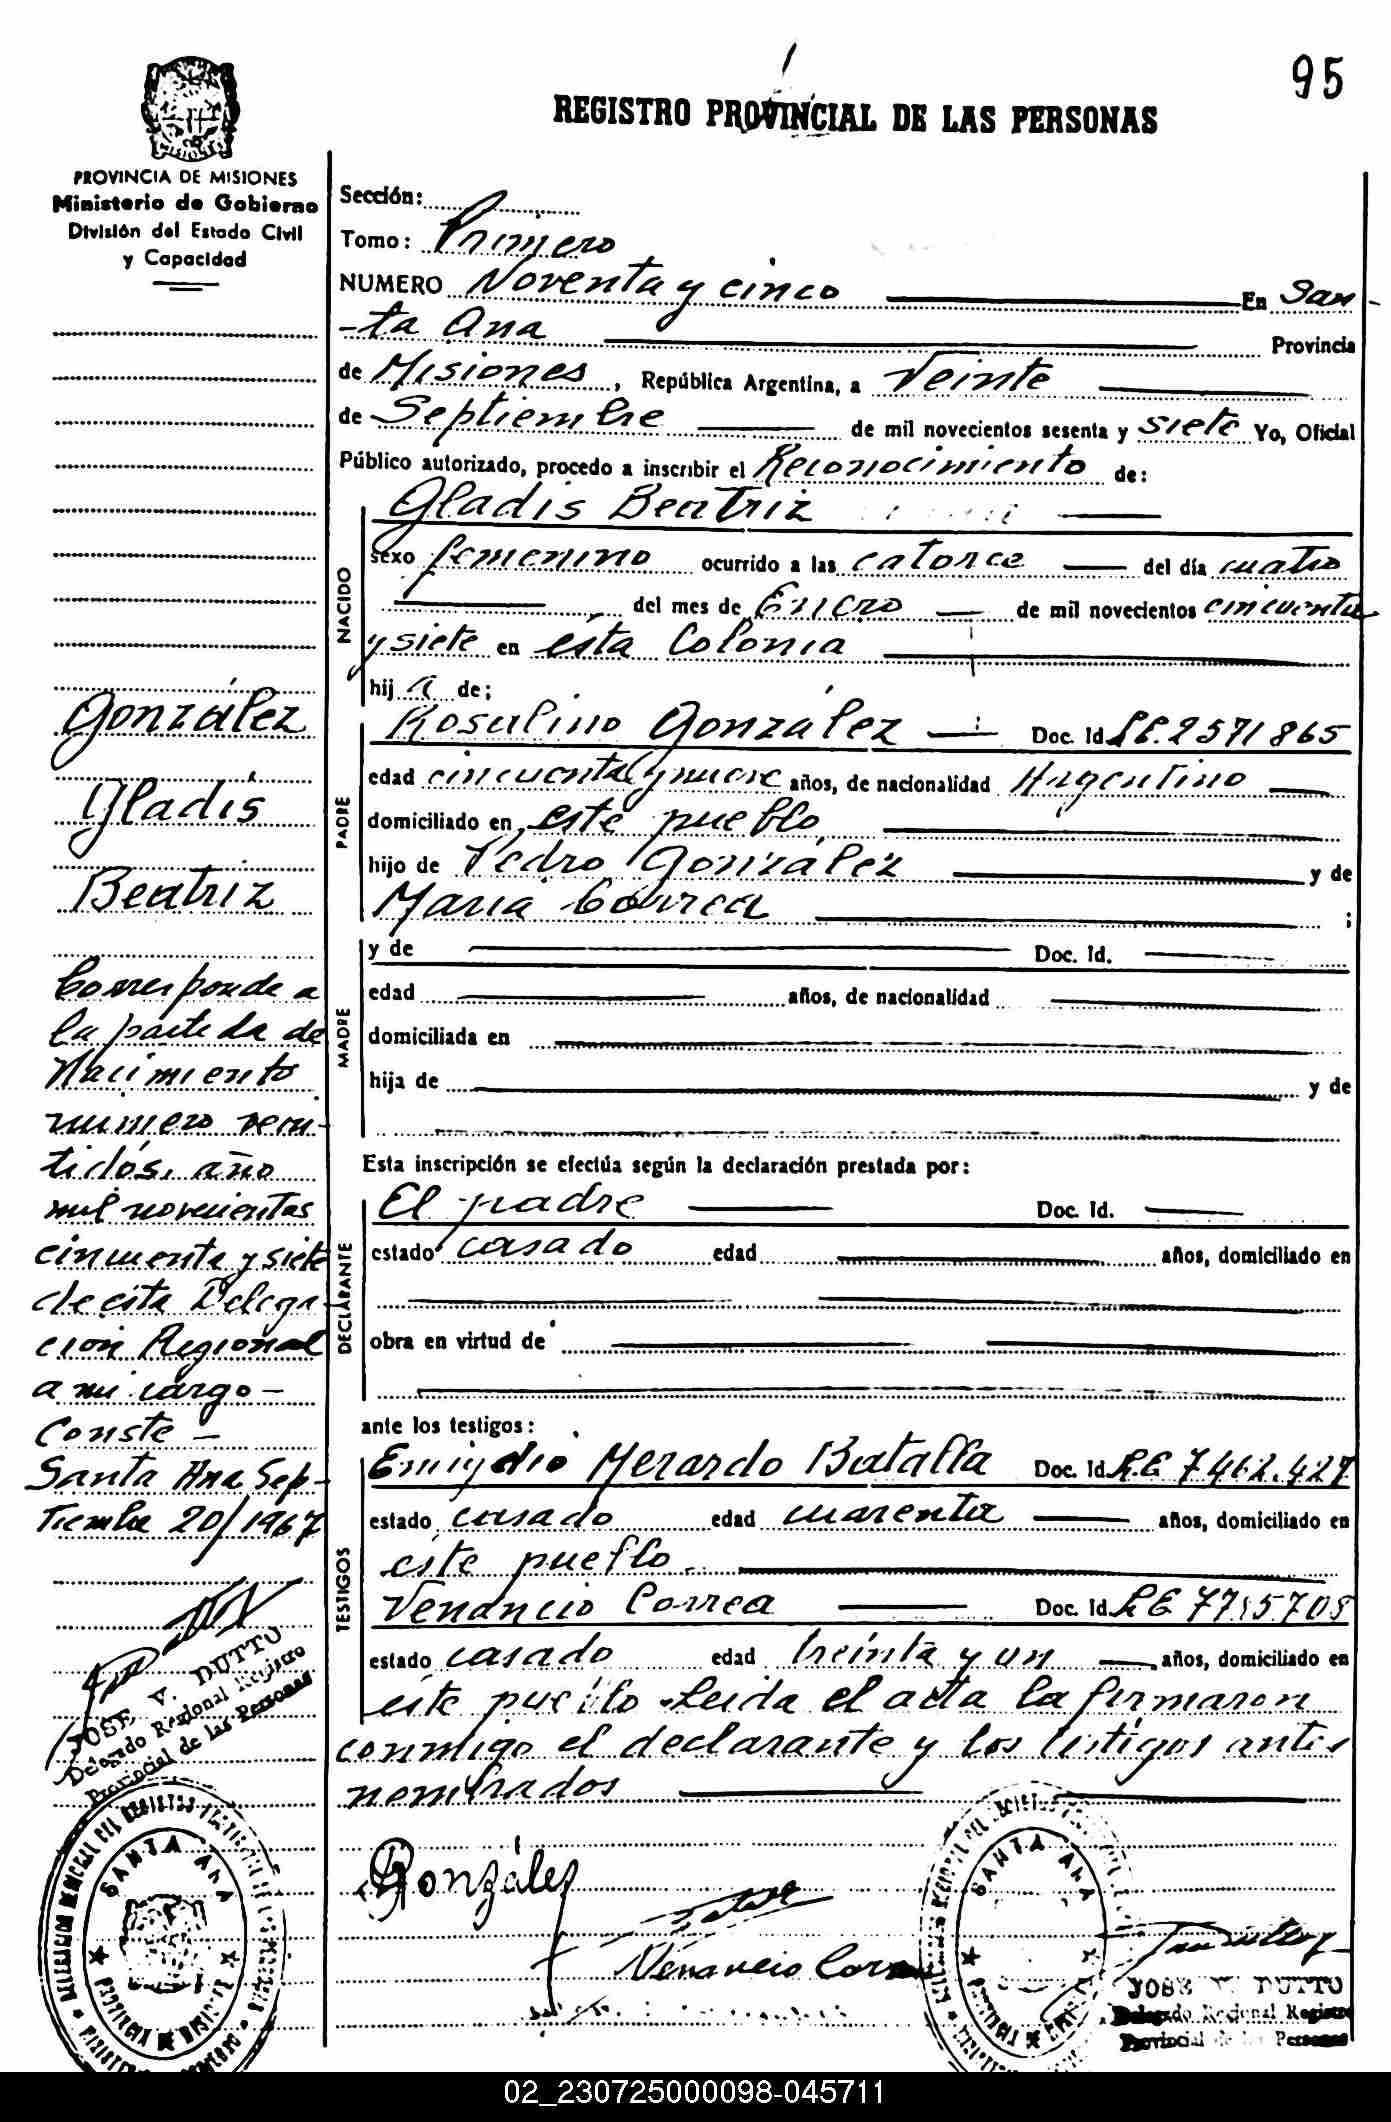 95
REGISTRO PROVINCIAL DE LAS PERSONAS
PROVINCIA DE MISIONES
Ministerio de Gobierno
División del Estado Civil
y Capacidad
González
Gladis
Beatriz
Corresponde a
la partida de
Nacimiento
número vein-
tidós, año
mil novecientos
cincuenta y siete
de esta Delega-
ción Regional
a mi cargo -
Conste -
Santa Ana Sep-
tiembre 20/1967
JOSE V. DUTTO
Delegado Regional Registro
Provincial de las Personas
SANTA ANA
PROVINCIA DE MISIONES
Sección:
Tomo: Primero
NUMERO Noventa y cinco En San-
-ta Ana Provincia
de Misiones, República Argentina, a Veinte
de Septiembre de mil novecientos sesenta y siete Yo, Oficial
Público autorizado, procedo a inscribir el Reconocimiento de:
Gladis Beatriz
NACIDO
sexo femenino ocurrido a las catorce del día cuatro
del mes de Enero de mil novecientos cincuenta
y siete en ésta Colonia
hij a de;
PADRE
Rosalino González Doc. Id. 2571865
edad cincuenta y nueve años, de nacionalidad Argentino
domiciliado en este pueblo
hijo de Pedro González y de
María Correa ;
MADRE
y de Doc. Id.
edad años, de nacionalidad
domiciliada en
hija de y de
Esta inscripción se efectúa según la declaración prestada por:
DECLARANTE
El padre Doc. Id.
estado casado edad años, domiciliado en
obra en virtud de
ante los testigos:
TESTIGOS
Emigdio Merardo Batalla Doc. Id. L.E 7462.427
estado casado edad cuarenta años, domiciliado en
éste pueblo
Venancio Correa Doc. Id. L E
estado casado edad treinta y un años, domiciliado en
este pueblo Leída el acta la firmaron
conmigo el declarante y los testigos antes
nombrados
González
Venancio Correa
SANTA ANA
JOSE V. DUTTO
Delegado Regional Registro
Provincial de las Personas
02_230725000098-045711